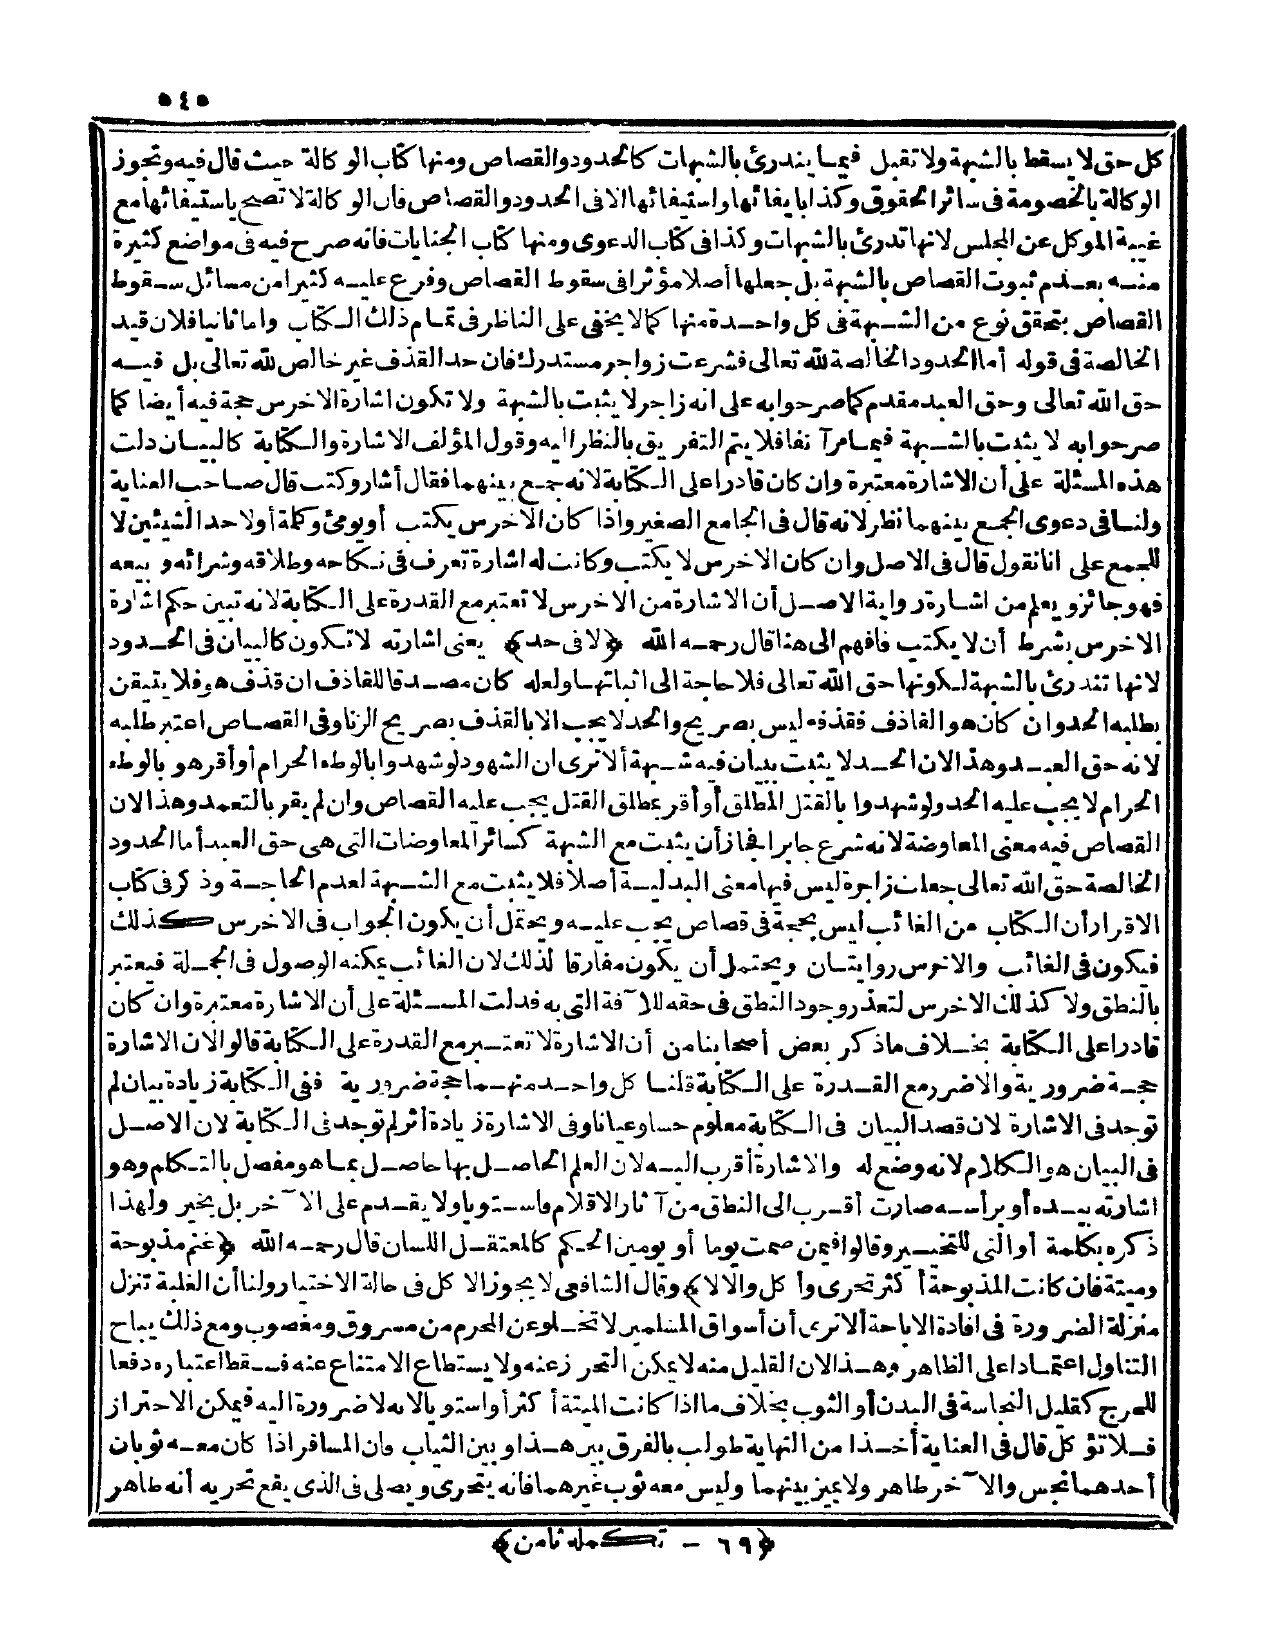 ٥٤٥
كل حق لا يسقط بالشبهة ولا تقبل فيما يندرئ بالشبهات كالحدود والقصاص ومنها كتاب الوكالة حيث قال فيه وتجوز
الوكالة بالخصومة فى سائر الحقوق وكذا بايفائها واستيفائها الا فى الحدود والقصاص فان الوكالة لا تصح باستيفائها مع
غيبة الموكل عن المجلس لانها تدرئ بالشبهات وكذا فى كتاب الدعوى ومنها كتاب الجنايات فانه صرح فيه فى مواضع كثيرة
منه بعدم ثبوت القصاص بالشبهة بل جعلها أصلا مؤثرا فى سقوط القصاص وفرع عليه كثيرا من مسائل سقوط
القصاص بتحقق نوع من الشبهة فى كل واحدة منها كما لا يخفى على الناظر فى تمام ذلك الكتاب واما ثانيا فلان قيد
الخالصة فى قوله أما الحدود الخالصة لله تعالى فشرعت زواجر مستدرك فان حد القذف غير خالص لله تعالى بل فيه
حق الله تعالى وحق العبد مقدم كما صرحوا به على انه زاجر لا يثبت بالشبهة ولا تكون اشارة الاخرس حجة فيه أيضا كما
صرحوا به لا يثبت بالشبهة فيما مر آنفا فلا يتم التفريق بالنظر اليه وقول المؤلف الاشارة والكتابة كالبيان دلت
هذه المسئلة على أن الاشارة معتبرة وان كان قادرا على الكتابة لانه جمع بينهما فقال أشار وكتب قال صاحب العناية
ولنا فى دعوى الجمع بينهما نظر لانه قال فى الجامع الصغير واذا كان الاخرس يكتب أو يومئ وكلمة أو لاحد الشيئين لا
للجمع على انا نقول قال فى الاصل وان كان الاخرس لا يكتب وكانت له اشارة تعرف فى نكاحه وطلاقه وشرائه وبيعه
فهو جائز ويعلم من اشارة رواية الاصل أن الاشارة من الاخرس لا تعتبر مع القدرة على الكتابة لانه تبين حكم اشارة
الاخرس بشرط أن لا يكتب فافهم الى هنا قال رحمه الله ﴿لا فى حد﴾ يعنى اشارته لا تكون كالبيان فى الحدود
لانها تندرئ بالشبهة لكونها حق الله تعالى فلا حاجة الى اثباتها ولعله كان مصدقا للقاذف ان قذف هو فلا يتيقن
بطلبه الحد وان كان هو القاذف فقذفه ليس بصريح والحد لا يجب الا بالقذف بصريح الزنا وفى القصاص اعتبر طلبه
لانه حق العبد وهذا لان الحد لا يثبت ببيان فيه شبهة ألا ترى ان الشهود لو شهدوا بالوطء الحرام أو أقر هو بالوطء
الحرام لا يجب عليه الحد ولو شهدوا بالقتل المطلق أو أقر بمطلق القتل يجب عليه القصاص وان لم يقر بالتعمد وهذا لان
القصاص فيه معنى المعاوضة لانه شرع جابرا فجاز أن يثبت مع الشبهة كسائر المعاوضات التى هى حق العبد أما الحدود
الخالصة حق الله تعالى جعلت زاجرة ليس فيها معنى البدلية أصلا فلا يثبت مع الشبهة لعدم الحاجة وذكر فى كتاب
الاقرار أن الكتاب من الغائب ليس بحجة فى قصاص يجب عليه ويحتمل أن يكون الجواب فى الاخرس كذلك
فيكون فى الغائب والاخرس روايتان ويحتمل أن يكون مفارقا لذلك لان الغائب يمكنه الوصول فى الجملة فيعتبر
بالنطق ولا كذلك الاخرس لتعذر وجود النطق فى حقه للآفة التى به فدلت المسئلة على أن الاشارة معتبرة وان كان
قادرا على الكتابة بخلاف ما ذكر بعض أصحابنا من أن الاشارة لا تعتبر مع القدرة على الكتابة قالوا لان الاشارة
حجة ضرورية والاضرر مع القدرة على الكتابة قلنا كل واحد منهما حجة ضرورية ففى الكتابة زيادة بيان لم
توجد فى الاشارة لان قصد البيان فى الكتابة معلوم حسا وعيانا وفى الاشارة زيادة أثر لم توجد فى الكتابة لان الاصل
فى البيان هو الكلام لانه وضع له والاشارة أقرب اليه لان العلم الحاصل بها حاصل بما هو مفصل بالتكلم وهو
اشارته بيده أو برأسه صارت أقرب الى النطق من آثار الاقلام فاستويا ولا يقدم على الآخر بل يخير ولهذا
ذكره بكلمة أو التى للتخيير وقالوا فيمن صمت يوما أو يومين الحكم كالمعتقل اللسان قال رحمه الله ﴿غنم مذبوحة
وميتة فان كانت المذبوحة أكثر تحرى وأكل والا لا﴾ وقال الشافعى لا يجوز الاكل فى حالة الاختيار ولنا أن الغلبة تنزل
منزلة الضرورة فى افادة الاباحة ألا ترى أن أسواق المسلمين لا تخلو عن المحرم من مسروق ومغصوب ومع ذلك يباح
التناول اعتمادا على الظاهر وهذا لان القليل منه لا يمكن التحرز عنه ولا يستطاع الامتناع عنه فسقط اعتباره دفعا
للحرج كقليل النجاسة فى البدن أو الثوب بخلاف ما اذا كانت الميتة أكثر أو استويا لانه لا ضرورة اليه فيمكن الاحتراز
فلا تؤكل قال فى العناية أخذا من النهاية طولب بالفرق بين هذا وبين الثياب فان المسافر اذا كان معه ثوبان
أحدهما نجس والآخر طاهر ولا يميز بينهما وليس معه ثوب غيرهما فانه يتحرى ويصلى فى الذى يقع تحريه أنه طاهر
﴿٦٩ - تكمله ثامن﴾